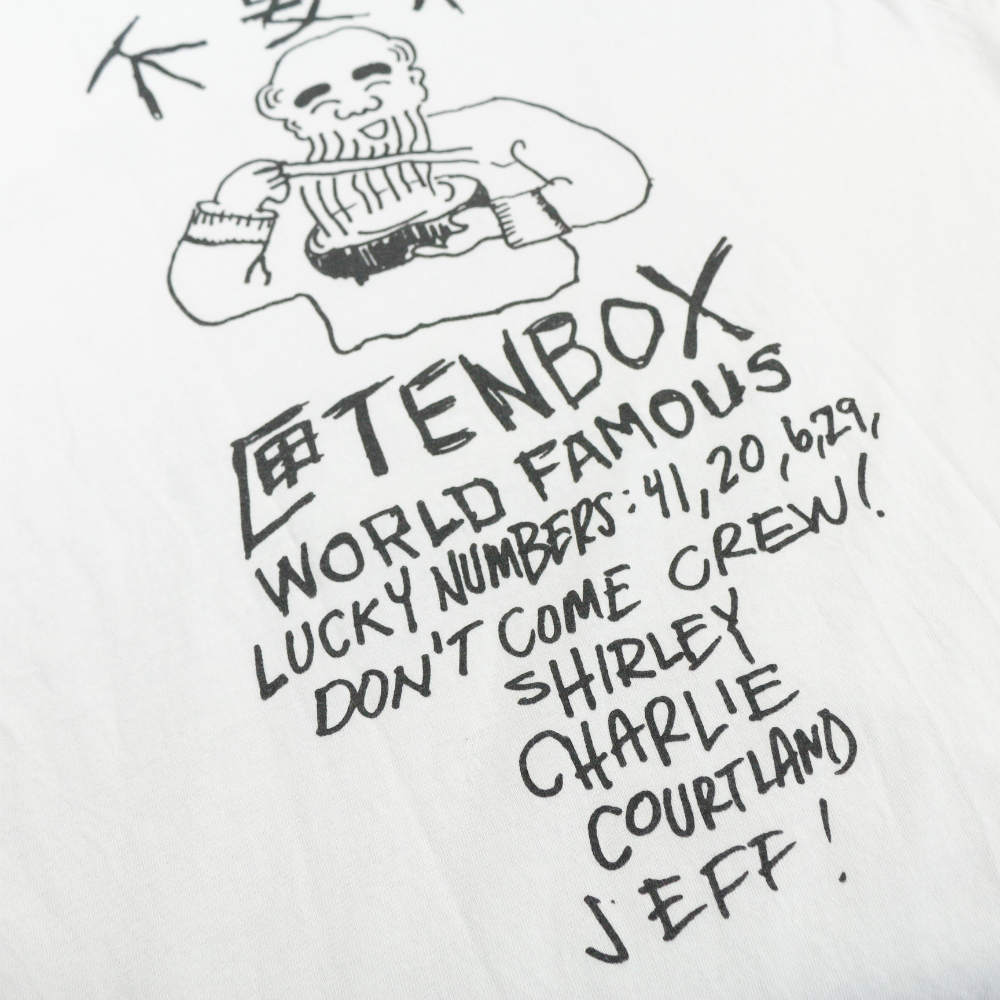 TENBOX
WORLD FAMOUS
LUCKY NUMBERS: 41, 20, 6, 29,
DON'T COME CREW!
SHIRLEY
CHARLIE
COURTLAND
JEFF!